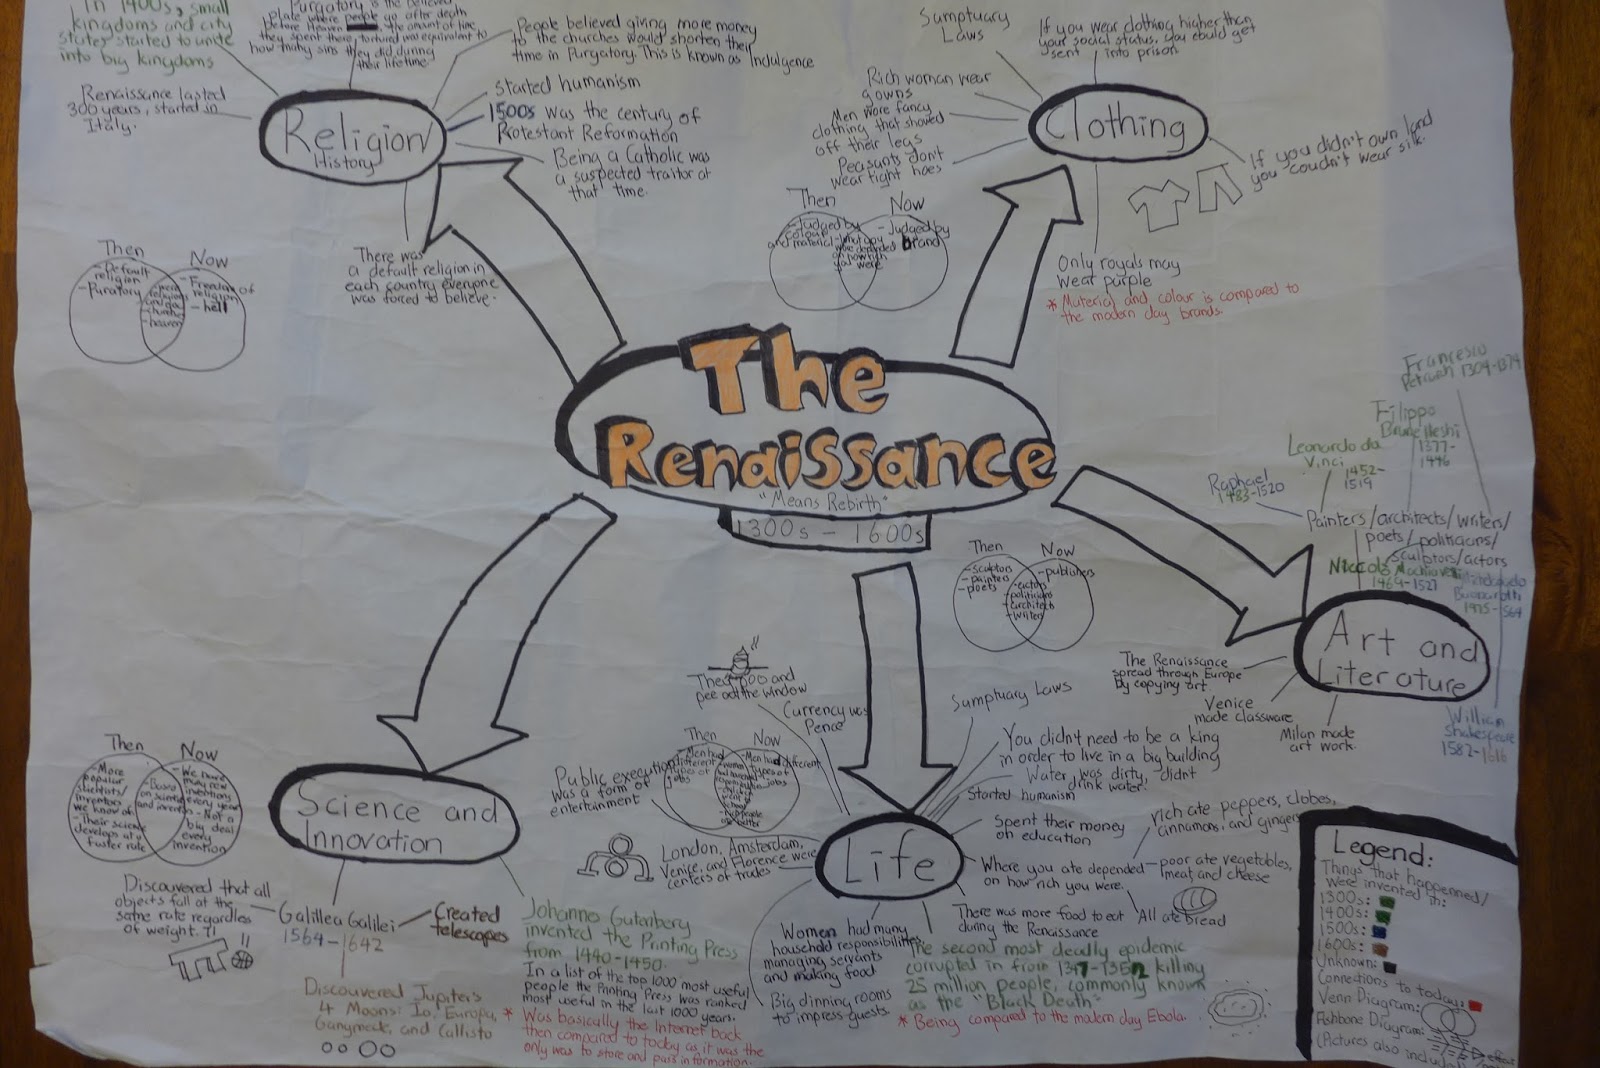 In 1400s, small
kingdoms and city
states started to unite
into big kingdoms
Purgatory is the believed
place where people go after death
before Heaven the amount of time
they spent there, tortured was equivalent to
how many sins they did during
their lifetime
People believed giving more money
to the churches would shorten their
time in Purgatory. This is known as Indulgence
started humanism
1500s was the century of
Protestant Reformation
Being a Catholic was
a suspected traitor at
that time.
Renaissance lasted
300 years, started in
Italy.
Religion
History
There was
a default religion in
each country everyone
was forced to believe.
Then
Now
- Default
religion
- Puratory
- Freedom of
religion
- hell
- heaven
Sumptuary
Laws
If you wear clothing higher than
your social status, you could get
sent into prison
Rich woman wear
gowns
Men wore fancy
clothing that showed
off their legs
Peasants don't
wear tight hoes
Clothing
If you didn't own land
you coudn't wear silk.
Only royals may
wear purple
* Material and colour is compared to
the modern day brands.
Then
Now
- Judged by
colour
and material
- What you
wore depended
on how rich
you were
- Judged by
brand
The
Renaissance
"Means Rebirth"
1300s - 1600s
Francesio
Petrarch 1304-1374
Filippo
Brunelleshi
1377-
1446
Leonardo da
Vinci 1452-
1519
Raphael
1483-1520
Painters/architects/writers/
poets/politicians/
sculptors/actors
Niccolo Machiavelli
1469-1527
William
Shakespeare
1582-1616
Art and
Literature
The Renaissance
spread through Europe
by copying art.
Venice
made classware
Milan made
art work.
Then
Now
- sculptors
- painters
- poets
- actors
- politicians
- architects
- writers
- publishers
Science and
Innovation
Then
Now
- More
popular
scientists/
inventors
we know of.
- Their science
develops at a
faster rate
- Based
on scientists
and inventors
- We have
many new
inventions
every year
- Not a
big deal
every
invention
Discovered that all
objects fall at the
same rate regardles
of weight.
Galillea Galilei
1564-1642
Created
telescopes
Discovered Jupiter's
4 Moons: Io, Europa,
Ganymede, and Callisto
Johanno Gutenberg
invented the Printing Press
from 1440-1450.
In a list of the top 1000 most useful
people the Printing Press was ranked
most useful in the last 1000 years.
* Was basically the Internet back
then compared to today as it was the
only was to store and pass information.
Life
They poo and
pee out the window
Currency was
Pence
Sumptuary Laws
You didn't need to be a king
in order to live in a big building
Water was dirty, didnt
drink water.
Started humanism
Spent their money
on education
Where you ate depended
on how rich you were.
rich ate peppers, clobes,
cinnamons, and gingers
poor ate vegetables,
meat and cheese
All ate bread
There was more food to eat
during the Renaissance
The second most deadly epidemic
corrupted in from 1347-1352 killing
25 million people, commonly known
as the "Black Death"
* Being compared to the modern day Ebola.
Women had many
household responsibilities
managing servants
and making food
Big dinning rooms
to impress guests.
London, Amsterdam,
Venice, and Florence were
centers of trades
Public execution
was a form of
entertainment
Then
Now
Men had
different
types of
jobs
Men had different
types of
jobs
Legend:
Things that happenned/
were invented in:
1300s:
1400s:
1500s:
1600s:
Unknown:
Connections to today:
Venn Diagram:
Fishbone Diagram:
(Pictures also included)